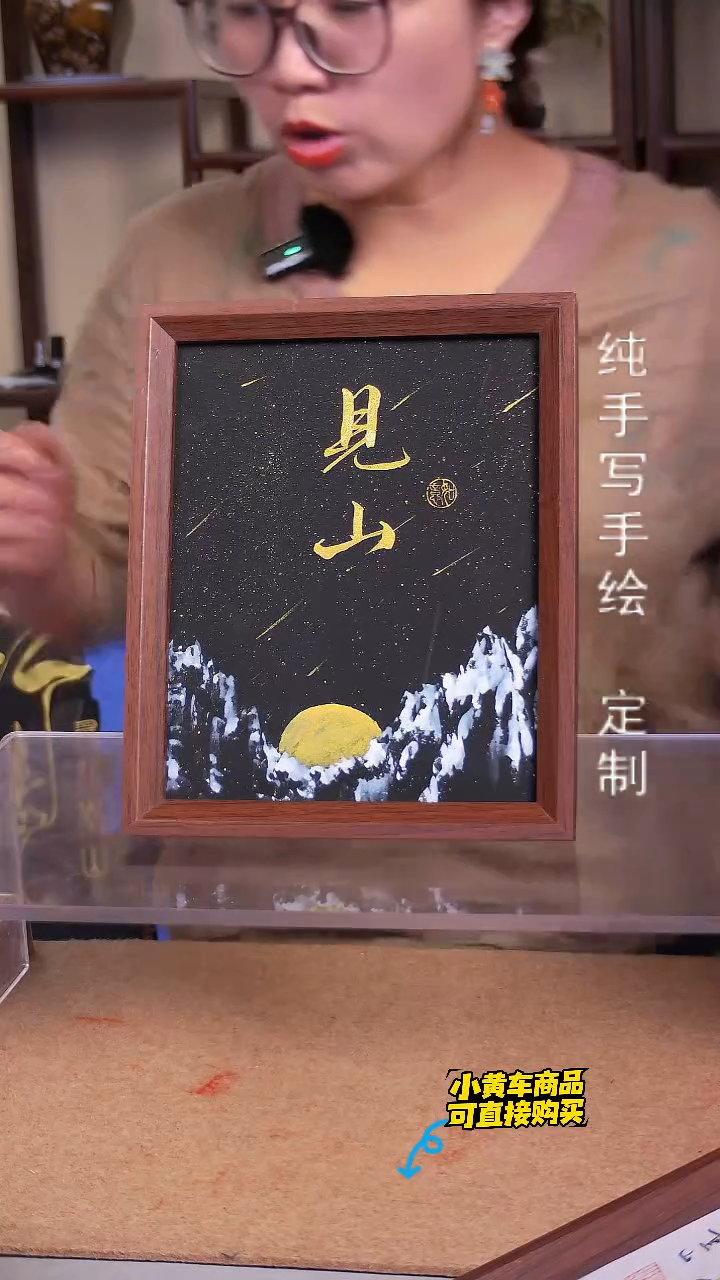 見
山
纯手写手绘 定制
小黄车商品
可直接购买